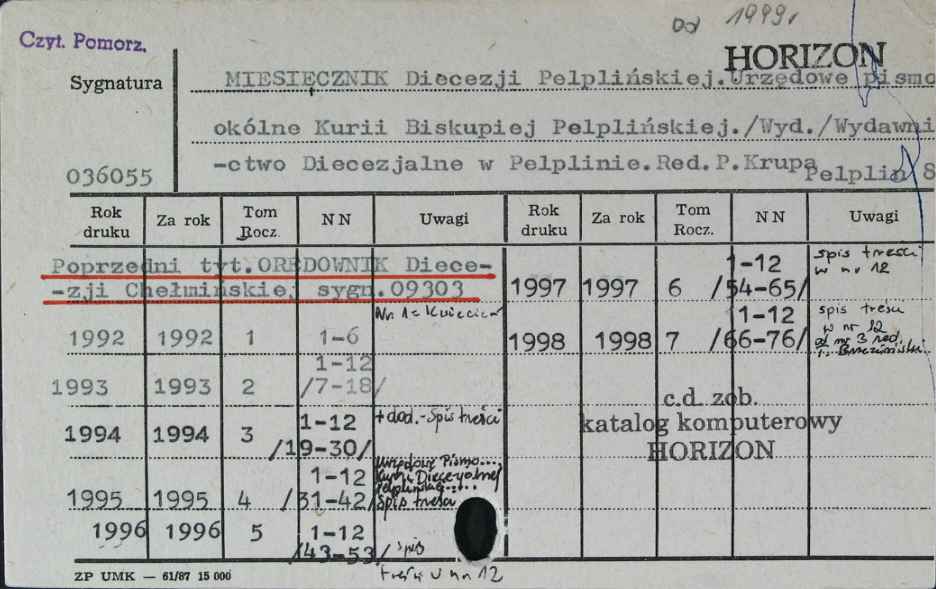 od 1999r
Czyt. Pomorz.
HORIZON
Sygnatura
MIESIĘCZNIK Diecezji Pelplińskiej.Urzędowe pismo
okólne Kurii Biskupiej Pelplińskiej./Wyd./Wydawni
-ctwo Diecezjalne w Pelplinie.Red.P.Krupa
Pelplin 8
036055
Rok druku Za rok Tom Rocz. NN Uwagi Rok druku Za rok Tom Rocz. NN Uwagi
Poprzedni tyt.ORĘDOWNIK Diece-
-zji Chełmińskie, sygn.09303
1992 1992 1 1-6 Nr. 1= Kwiecień
1993 1993 2 1-12 /7-18/
1994 1994 3 1-12 /19-30/ +dod.-Spis treści
1995 1995 4 1-12 /31-42/ Urzędowe Pismo... Kurii Diecezjalnej Pelplińskiej..... Spis treści
1996 1996 5 1-12 /43-53/ spis
treści w nr 12
1997 1997 6 1-12 /54-65/ spis treści w nr 12
1998 1998 7 1-12 /66-76/ spis treści w nr 12 od nr 3 red.
c.d. zob.
katalog komputerowy
HORIZON
ZP UMK — 61/87 15 000